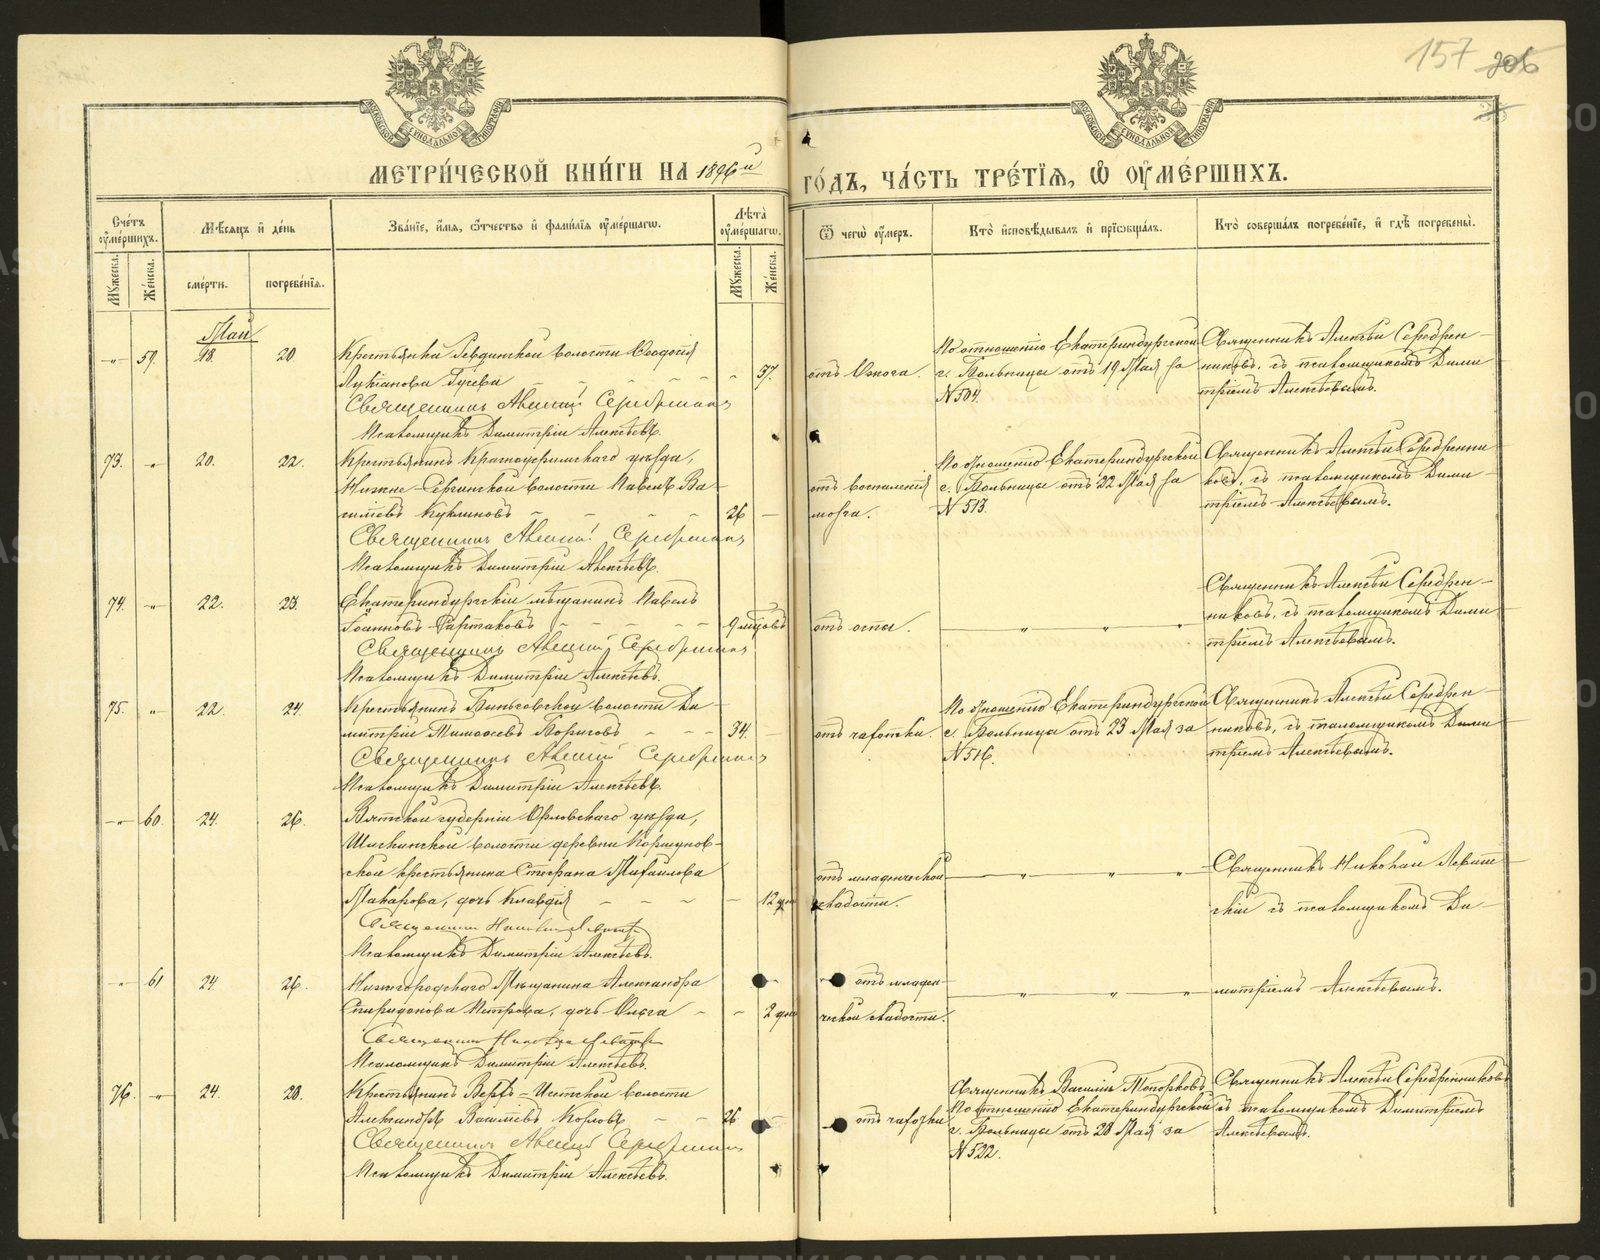 157 206
МЕТРИ́ЧЕСКОЙ КНИ́ГИ НА 1896й ГО́ДЪ, ЧА́СТЬ ТРЕ́ТІѦ, Ѡ ОУМЕ́РШИХЪ.
Сче́тъ оуме́ршихъ.
Мужеска.
Женска.
Мѣсяцъ и день
смерти.
погребенія.
Званіе, имя, отчество и фамилія оумершагѡ.
Лѣта оумершагѡ.
Мужеска.
Женска.
Ѿ чегѡ оумеръ.
Кто исповѣдывалъ и пріобщалъ.
Кто совершалъ погребеніе, и гдѣ погребены.
Май
-„- 59. 18. 20
Крестьянка волости Ѳеодосія
Лукіанова Гусева - - - - 37.
Священникъ Алексій Серебренник
Псаломщикъ Димитрій Алексѣевъ.
отъ ожога.
По отношенію Екатеринбургской
г. Больницы отъ 19 Мая за
№ 504.
Священникъ Алексѣй Серебрен-
никовъ, съ псаломщикомъ Дими
тріемъ Алексѣевымъ.
73. -„- 20. 22.
Крестьянинъ Красноуфимскаго уѣзда,
Нижне-Сергинской волости Павелъ Ва-
сильевъ Куклиновъ - - - - 26 -
Священникъ Алексій Серебренник
Псаломщикъ Димитрій Алексѣевъ.
отъ воспаленія
мозга.
По отношенію Екатеринбургской
г. Больницы отъ 22 Мая за
№ 513.
Священникъ Алексѣй Серебренни
ковъ, съ псаломщикомъ Дими
тріемъ Алексѣевымъ.
74. -„- 22. 23.
Екатеринбургскій мѣщанинъ Павелъ
Іоанновъ Фартаковъ - - - - 9 мѣсяцовъ
Священникъ Алексій Серебренник
Псаломщикъ Димитрій Алексѣевъ.
отъ оспы.
„ „ „
Священникъ Алексѣй Серебрен-
никовъ, съ псаломщикомъ Дими
тріемъ Алексѣевымъ.
75. „ 22. 24.
Крестьянинъ волости Ди-
митрій Тимофеевъ - - - 34. -
Священникъ Алексій Серебренник
Псаломщикъ Димитрій Алексѣевъ.
отъ чахотки.
По отношенію Екатеринбургской
г. Больницы отъ 23 Мая за
№ 516.
Священникъ Алексѣй Серебрен-
никовъ, съ псаломщикомъ Дими
тріемъ Алексѣевымъ.
-„- 60. 24. 26.
Вятской губерніи Орловскаго уѣзда,
волости деревни Коршунов-
ской крестьянина Стефана Михайлова
Макарова, дочь Клавдія - - - - 12 дн
Священникъ Николай
Псаломщикъ Димитрій Алексѣевъ.
отъ младенческой
слабости.
„ „ „
Священникъ Николай
скій съ псаломщикомъ Ди-
-„- 61 24. 26.
Нижегородскаго Мѣщанина Александра
Спиридонова Петрова, дочь Ольга - - 2 дня
Священникъ Николай
Псаломщикъ Димитрій Алексѣевъ.
отъ младен
ческой слабости.
„ „ „
митріемъ Алексѣевымъ.
76. -„- 24. 28.
Крестьянинъ Верхъ-Исетской волости
Александръ Васильевъ Козловъ - - 26
Священникъ Алексій Серебренник
Псаломщикъ Димитрій Алексѣевъ.
отъ чахотки
Священникъ Василій Топорковъ
По отношенію Екатеринбургской
г. Больницы отъ 28 Мая за
№ 522.
Священникъ Алексѣй Серебренниковъ
съ псаломщикомъ Димитріемъ
Алексѣевымъ.